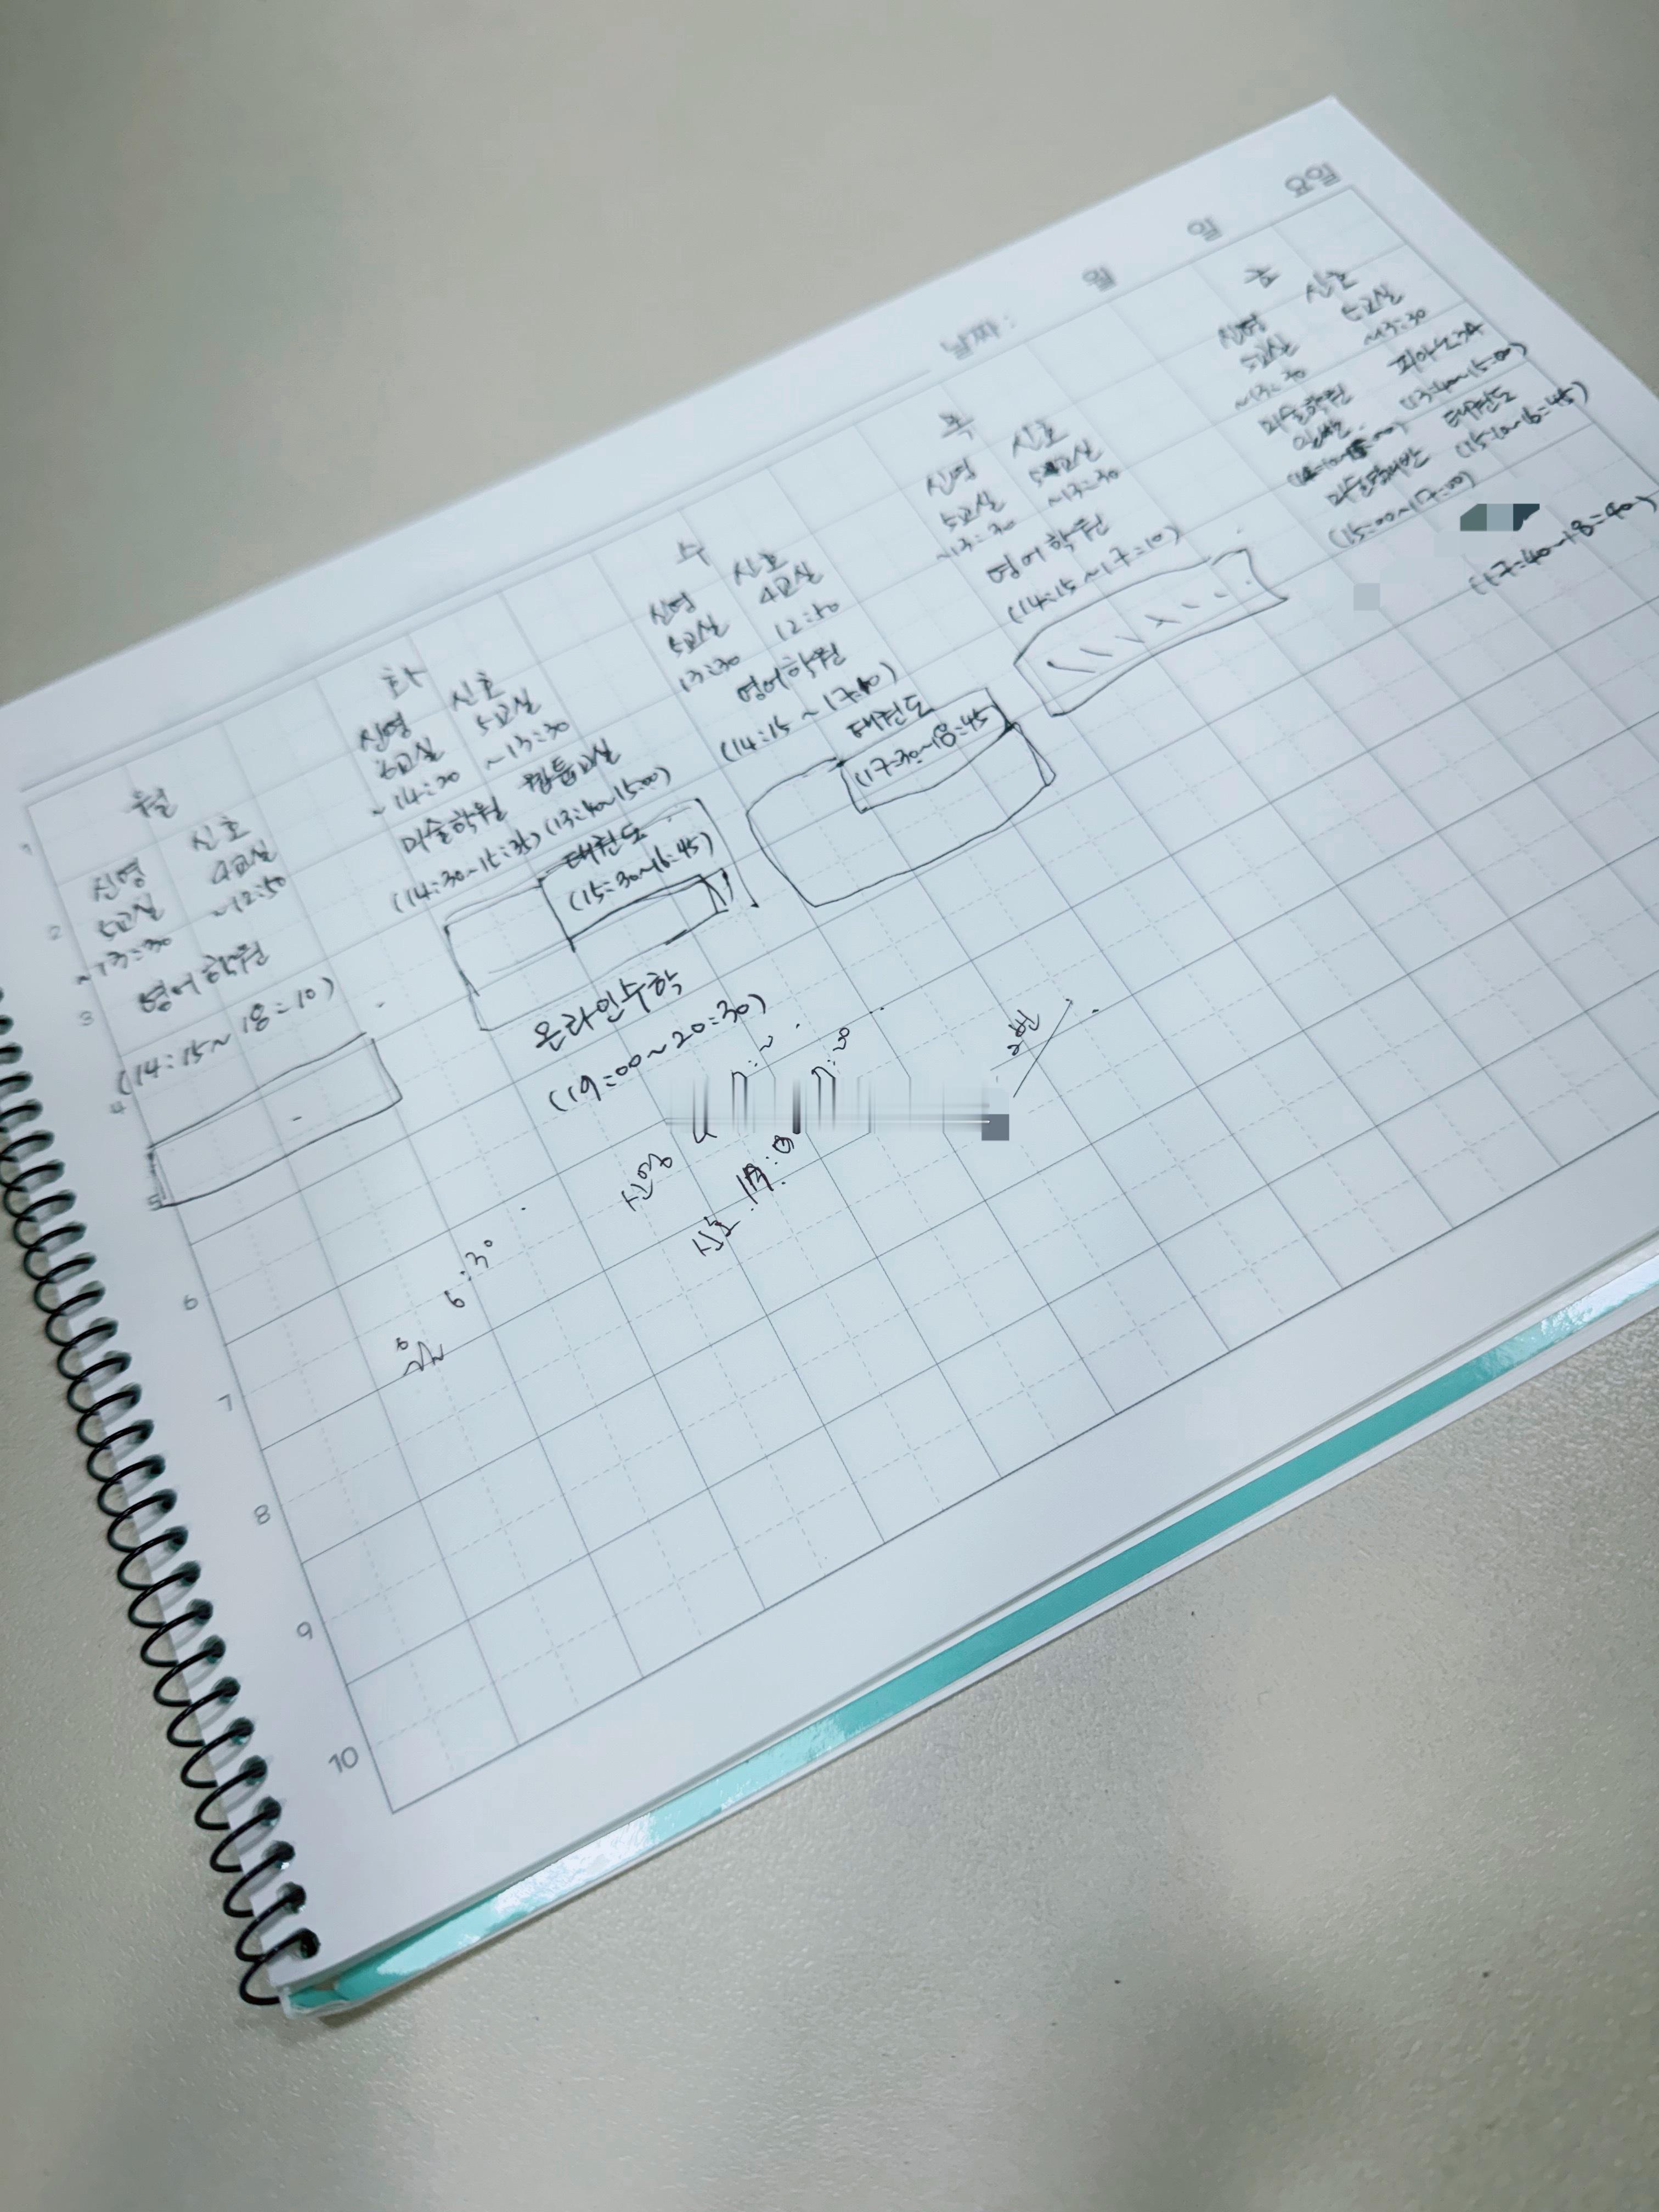 날짜 : 월 일 요일
월
신영 신호
5교실 4교실
~13:30 ~12:50
영어학원
(14:15~18:10)
화
신영 신호
6교실 5교실
~14:20 ~13:30
미술학원
(14:30~15:35) (13:40~15:00)
태권도
(15:30~16:45)
온라인수학
(19:00~20:30)
수
신영 신호
5교실 4교실
13:30 12:50
영어학원
(14:15~17:10)
태권도
(17:30~18:45)
목
신영 신호
5교실 5교실
~13:30 ~13:30
영어학원
(14:15~17:10)
신영 신호
5교실 5교실
~13:30 ~13:30
미술학원
(13:40~15:00)
태권도
(15:10~16:45)
(15:00~17:00)
(17:40~18:40)
신영
신호
6:30
1
2
3
4
5
6
7
8
9
10